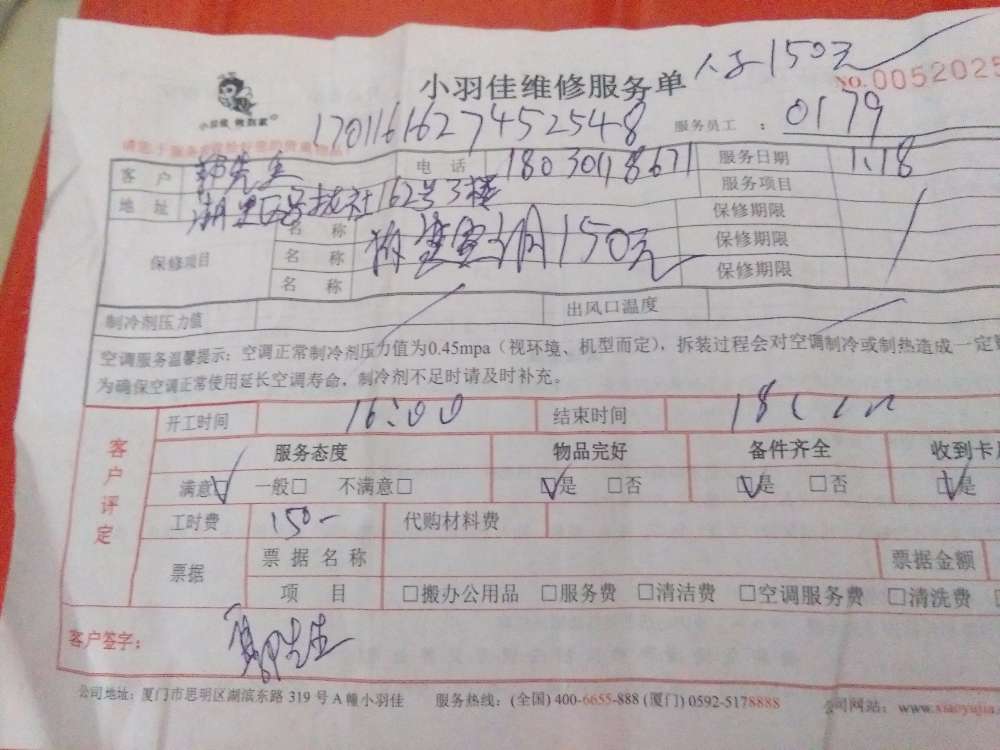 小羽佳维修服务单 150元
NO.0052025
小羽佳 微到家
1701161627452548 服务员工 : 0179
客户 先生 电话 18030118671 服务日期 1.18
地址 湖里区 社162号3楼 服务项目
保修项目
名称 保修期限
名称 150元 保修期限
名称 保修期限
制冷剂压力值 出风口温度
空调服务温馨提示：空调正常制冷剂压力值为0.45mpa（视环境、机型而定），拆装过程会对空调制冷或制热造成一定
为确保空调正常使用延长空调寿命，制冷剂不足时请及时补充。
客户评定
开工时间 16:00 结束时间 18
服务态度 物品完好 备件齐全 收到卡
满意☑ 一般□ 不满意□ ☑是 □否 ☑是 □否 ☑是
工时费 150- 代购材料费
票据 票据名称 票据金额
项目 □搬办公用品 □服务费 □清洁费 □空调服务费 □清洗费
客户签字： 先生
公司地址：厦门市思明区湖滨东路 319 号 A 幢小羽佳 服务热线：(全国) 400-6655-888 (厦门) 0592-5178888 公司网站：www.xiaoyujia.